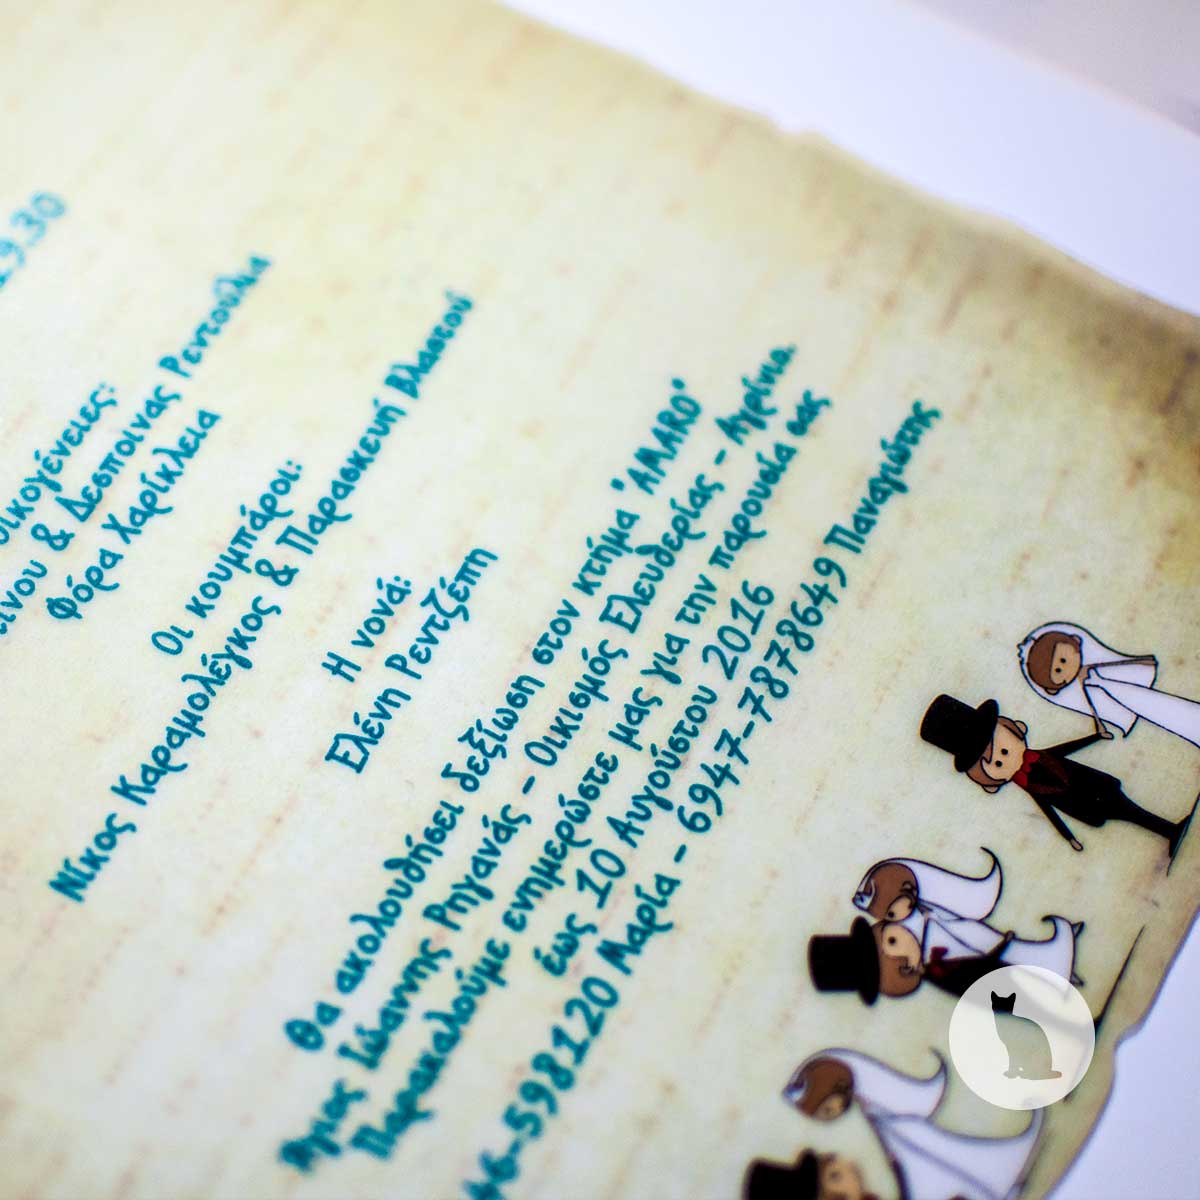 9.30
Οικογένειες:
& Δεσποινας Ρεντούλια
Φόρα Χαρίκλεια
Οι κουμπάροι:
Νίκος Καραμολέγκος & Παρασκευή Βλαστού
Η νονά:
Ελένη Ρεντζέπη
Θα ακολουθήσει δεξίωση στον κτήμα "AMARO"
Αγιος Ιώαννης Ρηγανάς - Οικισμός Ελευθερίας - Αγρίνιο.
Παρακαλούμε ενημερώστε μας για την παρουσία σας
έως 10 Αυγούστου 2016
46-598120 Μαρία - 6947-7878649 Παναγιώτης